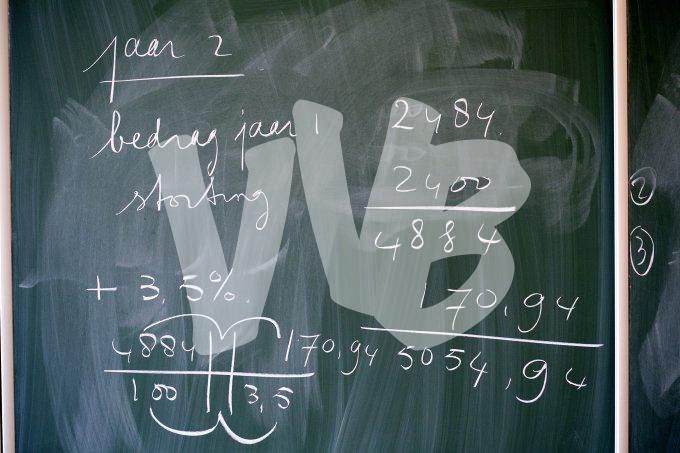 jaar 2
bedrag jaar 1 2484.
storting 2400
4884
+ 3,5%. 170,94
4884 || 170,94 5054,94
100 || 3,5
2
3
VVB